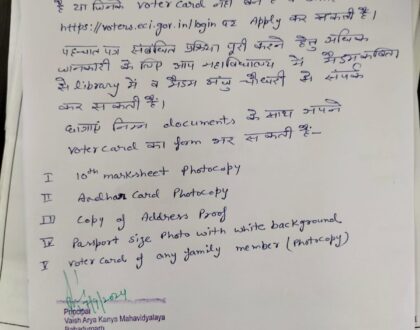 है या जिनके Voter Card नहीं बने है वे छात्राएं
https://voters.eci.gov.in/login पर Apply कर सकती है।
पहचान पत्र संबंधित प्रक्रिया पूरी करने हेतु अधिक
जानकारी के लिए आप महाविद्यालय में मैडम कविता
से library में व मैडम मंजु चौधरी से संपर्क
कर सकती है।
छात्राएं निम्न documents के साथ अपने
Voter Card का form भर सकती हैः-
I 10th marksheet Photocopy
II Aadhar Card Photocopy
III Copy of Address Proof
IV Passport size Photo with white background
V Voter Card of any family member (Photocopy)
Principal
Vaish Arya Kanya Mahavidyalaya
Bahadurgarh